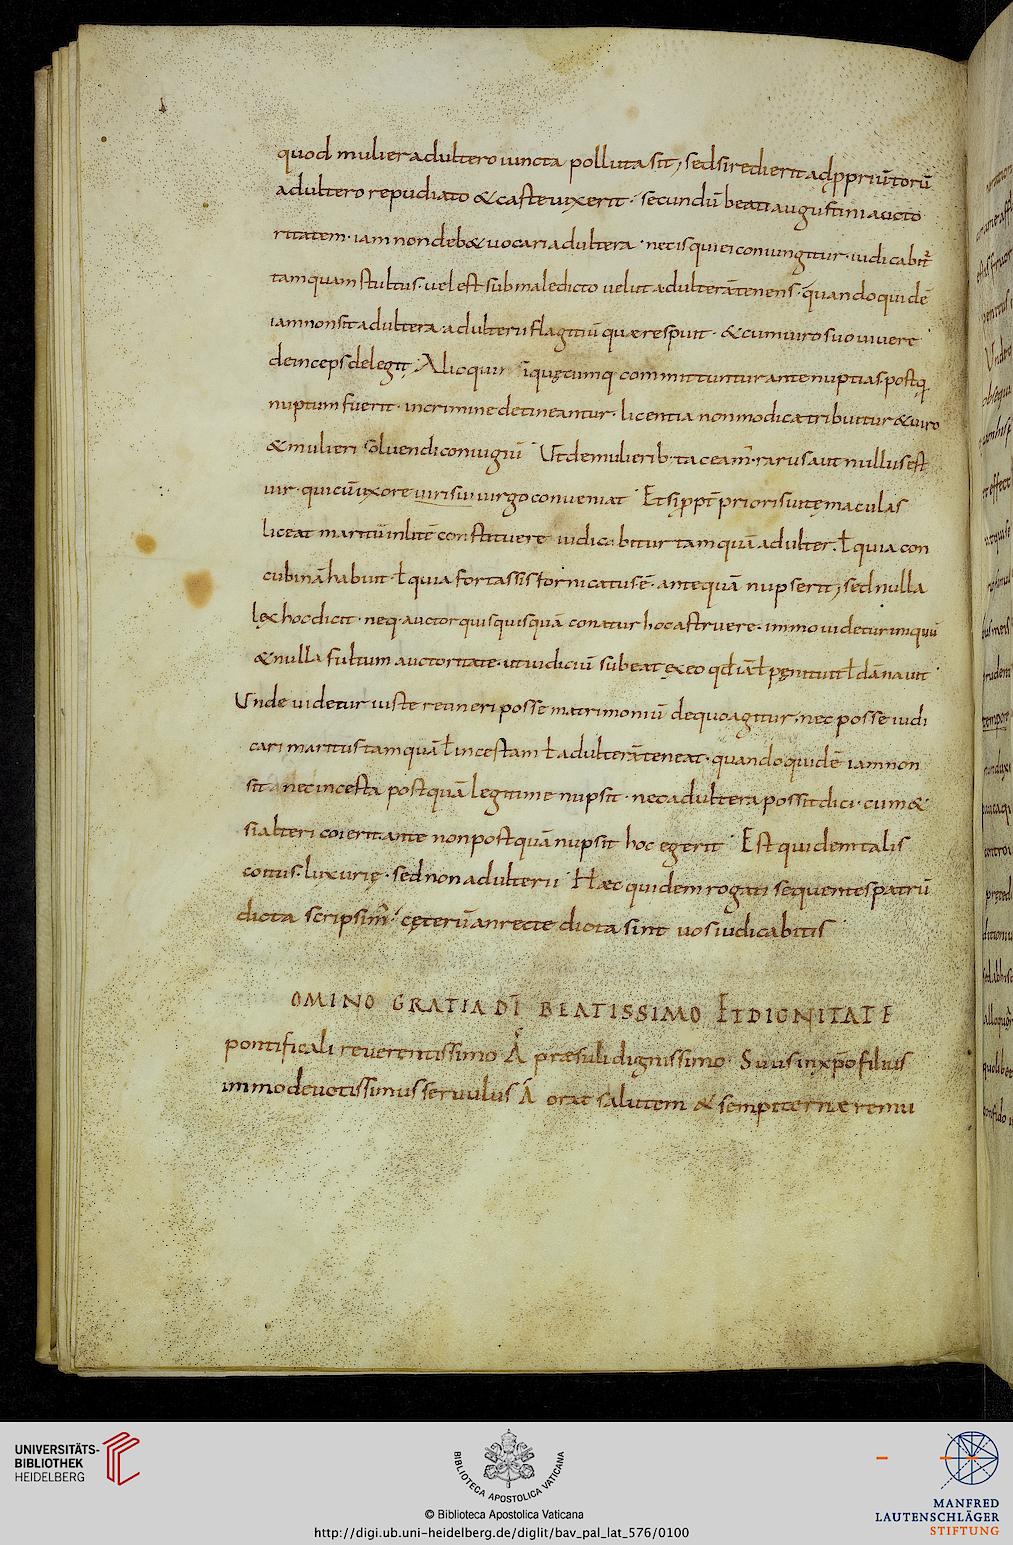 quod mulier adultero iuncta polluta sit; sed si redierit ad ppriū torū
adultero repudiato & caste uixerit· secundū beati augustini aucto
ritatem· iam non deb& uocari adultera· nec is qui ei coniungitur· iudicabit̄
tamquam stultus· uel est sub maledicto uelut adulterā tenens· quando quidē
iam non sit adultera adulterii flagitiū quæ respuit· & cum uiro suo uiuere
deinceps delegit; Alioquin quęcumq committuntur ante nuptias postq̄
nuptum fuerit· in crimine detineantur· licentia non modica tribuitur & uiro
& mulieri soluendi coniugiū· Ut de mulierib· taceam̄· rarus aut nullus est
uir· qui cū uxore uiri sui uirgo conueniat· Et si ppt̄ prioris uitę maculas
liceat maritū in litē constituere iudicabitur tamquā adulter· ł quia con
cubinā habuit· ł quia fortassis fornicatus ē· antequā nupserit; sed nulla
lęx hoc dicit· neq· auctor quisquis quā conatur hoc astruere· immo uidetur iniquū
& nulla fultum auctoritate· ut iudiciū subeat ęx eo qđ iā ł pęnituit ł dānauit
Unde uidetur iuste retineri posse matrimoniū de quo agitur· nec posse iudi
cari maritus tamquā ł incestam ł adulterā teneat· quando quidē iam non
sit nec incesta postquā legitime nupsit· nec adultera possit dici· cum &
si alteri coierit ante non postquā nupsit hoc egerit· Est quidem talis
coitus· luxurię· sed non adulterii· Hæc quidem rogati sequentes patrū
dicta scripsim̄· cęterū an recte dicta sint uos iudicabitis
OMINO GRATIA DĪ BEATISSIMO ET DIGNITATE
pontificali reuerentissimo A praesuli dignissimo· Suus in xp̄o filius
immo deuotissimus seruulus A orat salutem & sempiternae remu
UNIVERSITÄTS-
BIBLIOTHEK
HEIDELBERG
BIBLIOTECA APOSTOLICA VATICANA
© Biblioteca Apostolica Vaticana
http://digi.ub.uni-heidelberg.de/diglit/bav_pal_lat_576/0100
MANFRED
LAUTENSCHLÄGER
STIFTUNG